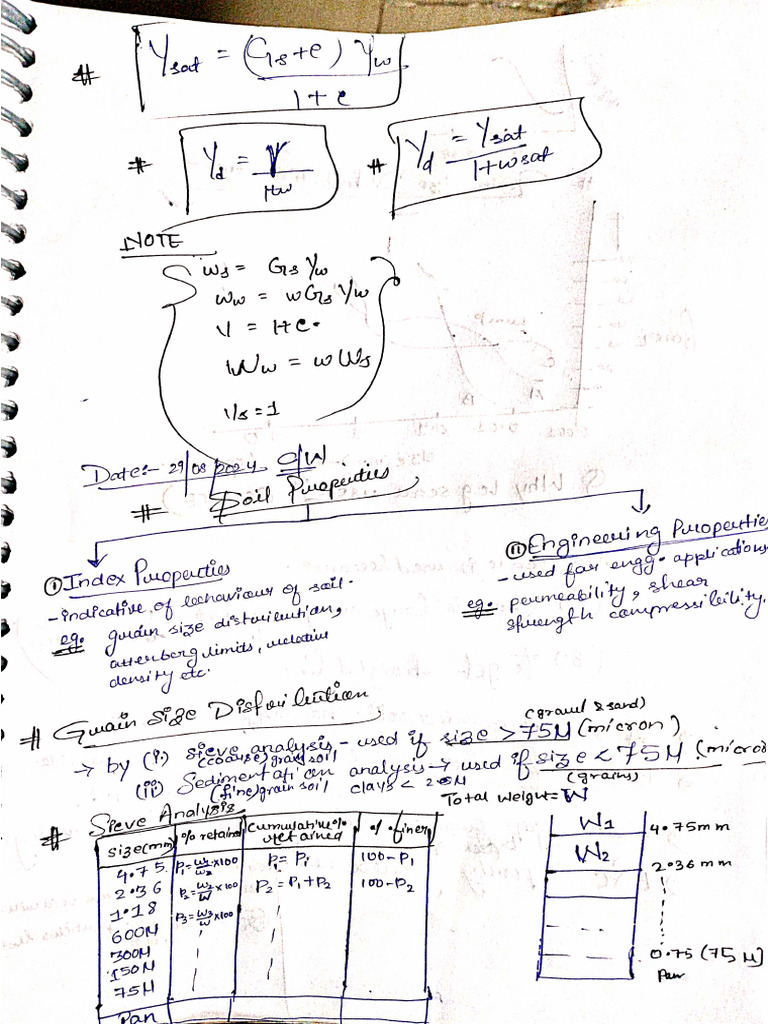 # γsat = (Gs+e) γw / 1+e
# γd = γ / 1+w
# γd = γsat / 1+wsat
NOTE
Ws = Gs γw
Ww = wGs γw
V = 1+e.
Ww = w Ws
Vs = 1
Date:- 29/08/2024 C/W
# Soil Properties
(i) Index Properties
- indicative of behaviour of soil.
eg. grain size distribution,
atterberg limits, relative
density etc.
(ii) Engineering Propertie
- used for engg. applications
eg: permeability, shear
strength compressibility.
# Grain Size Distribution
(gravel & sand)
→ by (i) Sieve analysis - used if size > 75μ (micron)
(coarse) grain soil
(ii) Sedimentation analysis → used if size < 75μ (micro
(fine) grain soil clays < 2μ (grains)
Total weight = W
# Sieve Analysis
size(mm) % retained cumulative % retained % finer
4.75 P1 = w1/w2 ×100 P1 = P1 100-P1
2.36 P2 = w2/W ×100 P2 = P1+P2 100-P2
1.18 P3 = w3/w ×100
600μ
300μ
150μ
75μ
Pan
W1 4.75mm
W2 2.36 mm
0.75 (75 μ)
Pan